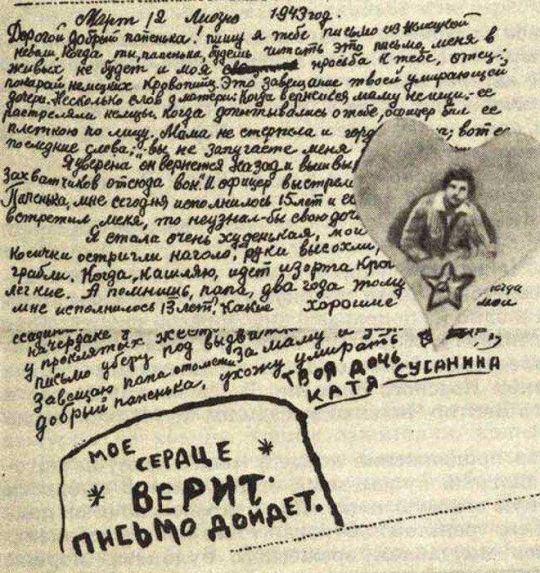 Март, 12 Лиозно 1943 год.
Дорогой, добрый папенька! Пишу я тебе письмо из немецкой
неволи. Когда ты, папенька, будешь читать это письмо, меня в
живых не будет. И моя просьба к тебе, отец:
покарай немецких кровопийц. Это завещание твоей умирающей
дочери. Несколько слов о матери. Когда вернешься, маму не ищи. Ее
растреляли немцы. Когда допытывались о тебе, офицер бил ее
плеткою по лицу. Мама не стерпела и гордо вот ее
последние слова: "вы не запугаете меня
Я уверена он вернется назад и вышвыр
захватчиков отсюда вон". И офицер выстрелил
Папенька, мне сегодня исполнилось 15 лет и если
встретил меня, то неузнал-бы свою доч
Я стала очень худенькая, мои
косички остригли наголо, руки высохли,
грабли. Когда кашляю, идет изо рта кровь
легкие. А помнишь, папа, два года тому когда
мне исполнилось 13 лет? Какие хорошие мои
на чердаке у
у проклятых жест
письмо уберу под
Завещаю, папа: отомсти за маму и
добрый папенька, ухожу умирать
ТВОЯ ДОЧЬ
КАТЯ СУСАНИНА
МОЕ
СЕРДЦЕ
ВЕРИТ.
ПИСЬМО ДОЙДЕТ.